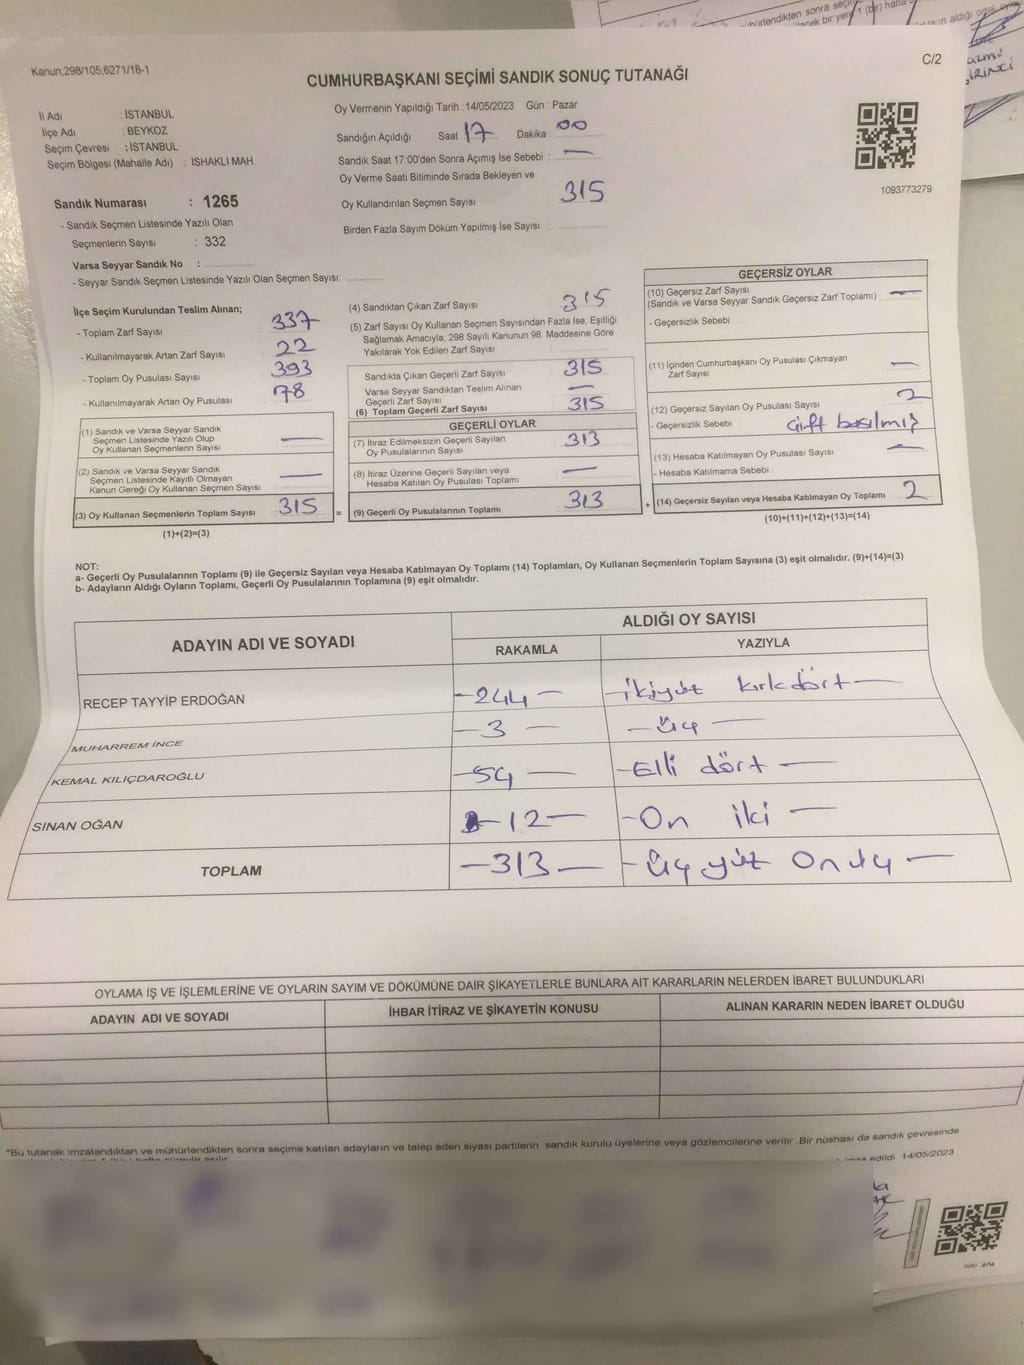 Kanun;298/105;6271/18-1
C/2
CUMHURBAŞKANI SEÇİMİ SANDIK SONUÇ TUTANAĞI
İl Adı : İSTANBUL
İlçe Adı : BEYKOZ
Seçim Çevresi : İSTANBUL
Seçim Bölgesi (Mahalle Adı) : İSHAKLI MAH.
Sandık Numarası : 1265
- Sandık Seçmen Listesinde Yazılı Olan
Seçmenlerin Sayısı : 332
Varsa Seyyar Sandık No :
- Seyyar Sandık Seçmen Listesinde Yazılı Olan Seçmen Sayısı:
Oy Vermenin Yapıldığı Tarih :14/05/2023 Gün : Pazar
Sandığın Açıldığı Saat 17 Dakika : 00
Sandık Saat 17:00'den Sonra Açımış İse Sebebi : —
Oy Verme Saati Bitiminde Sırada Bekleyen ve
Oy Kullandırılan Seçmen Sayısı 315
Birden Fazla Sayım Döküm Yapılmış İse Sayısı :
1093773279
İlçe Seçim Kurulundan Teslim Alınan;
- Toplam Zarf Sayısı 337
- Kullanılmayarak Artan Zarf Sayısı 22
- Toplam Oy Pusulası Sayısı 393
- Kullanılmayarak Artan Oy Pusulası 78
(1) Sandık ve Varsa Seyyar Sandık
Seçmen Listesinde Yazılı Olup
Oy Kullanan Seçmenlerin Sayısı —
(2) Sandık ve Varsa Seyyar Sandık
Seçmen Listesinde Kayıtlı Olmayan
Kanun Gereği Oy Kullanan Seçmen Sayısı —
(3) Oy Kullanan Seçmenlerin Toplam Sayısı 315 =
(1)+(2)=(3)
(4) Sandıktan Çıkan Zarf Sayısı 315
(5) Zarf Sayısı Oy Kullanan Seçmen Sayısından Fazla İse, Eşitliği
Sağlamak Amacıyla, 298 Sayılı Kanunun 98. Maddesine Göre
Yakılarak Yok Edilen Zarf Sayısı
Sandıkta Çıkan Geçerli Zarf Sayısı 315
Varsa Seyyar Sandıktan Teslim Alınan
Geçerli Zarf Sayısı —
(6) Toplam Geçerli Zarf Sayısı 315
GEÇERLİ OYLAR
(7) İtiraz Edilmeksizin Geçerli Sayılan
Oy Pusulalarının Sayısı 313
(8) İtiraz Üzerine Geçerli Sayılan veya
Hesaba Katılan Oy Pusulası Toplamı —
(9) Geçerli Oy Pusulalarının Toplamı 313 +
GEÇERSİZ OYLAR
(10) Geçersiz Zarf Sayısı
(Sandık ve Varsa Seyyar Sandık Geçersiz Zarf Toplamı) —
- Geçersizlik Sebebi :
(11) İçinden Cumhurbaşkanı Oy Pusulası Çıkmayan
Zarf Sayısı —
(12) Geçersiz Sayılan Oy Pusulası Sayısı 2
- Geçersizlik Sebebi : Çift basılmış
(13) Hesaba Katılmayan Oy Pusulası Sayısı —
- Hesaba Katılmama Sebebi :
(14) Geçersiz Sayılan veya Hesaba Katılmayan Oy Toplamı 2
(10)+(11)+(12)+(13)=(14)
NOT:
a- Geçerli Oy Pusulalarının Toplamı (9) ile Geçersiz Sayılan veya Hesaba Katılmayan Oy Toplamı (14) Toplamları, Oy Kullanan Seçmenlerin Toplam Sayısına (3) eşit olmalıdır. (9)+(14)=(3)
b- Adayların Aldığı Oyların Toplamı, Geçerli Oy Pusulalarının Toplamına (9) eşit olmalıdır.
ADAYIN ADI VE SOYADI
ALDIĞI OY SAYISI
RAKAMLA YAZIYLA
RECEP TAYYİP ERDOĞAN —244— —ikiyüz kırkdört—
MUHARREM İNCE —3— —üç—
KEMAL KILIÇDAROĞLU —54— —Elli dört—
SİNAN OĞAN —12— —On iki—
TOPLAM —313— —üçyüz onüç—
OYLAMA İŞ VE İŞLEMLERİNE VE OYLARIN SAYIM VE DÖKÜMÜNE DAİR ŞİKAYETLERLE BUNLARA AİT KARARLARIN NELERDEN İBARET BULUNDUKLARI
ADAYIN ADI VE SOYADI İHBAR İTİRAZ VE ŞİKAYETİN KONUSU ALINAN KARARIN NEDEN İBARET OLDUĞU
*Bu tutanak imzalandıktan ve mühürlendikten sonra seçime katılan adayların ve talep eden siyasi partilerin sandık kurulu üyelerine veya gözlemcilerine verilir .Bir nüshası da sandık çevresinde
edildi. 14/05/2023